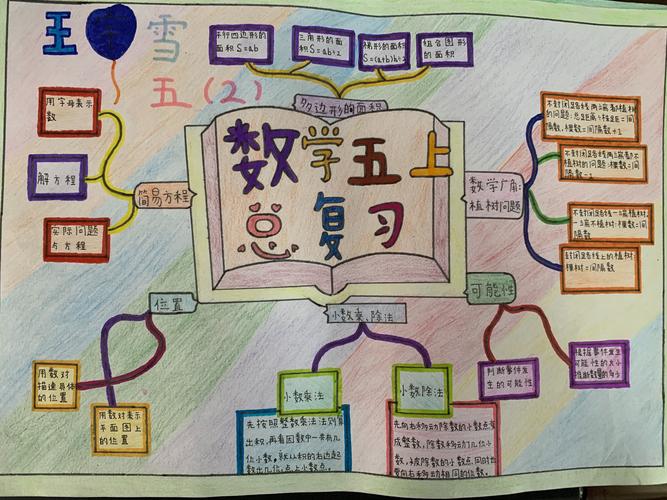 王 雪
五(2)
平行四边形的
面积S=ab
三角形的面
积S=ab÷2
梯形的面积
S=(a+b)h÷2
组合图形
的面积
多边形的面积
数学五上
总复习
用字母表示
数
解方程
实际问题
与方程
简易方程
数学广角:
植树问题
不封闭路线两端都植树
的问题:总距离÷株距=间
隔数,棵数=间隔数+1
不封闭路线两端都不
植树的问题:棵数=间
隔数-1
不封闭路线一端植树,
一端不植树:棵数=间
隔数
封闭路线上的植树:
棵树=间隔数
位置
用数对
描述具体
的位置
用数对表示
平面图上
的位置
小数乘、除法
小数乘法
先按照整数乘法法则算
出积,再看因数中一共有几
位小数,就从积的右边起
数出几位,点上小数点。
小数除法
先向右移动除数的小数点,变
成整数,除数移动了几位小
数,被除数的小数点同时也
要向右移动相同的位数。
可能性
判断事件发
生的可能性
根据事件发生
可能性的大小
推断数量的多少